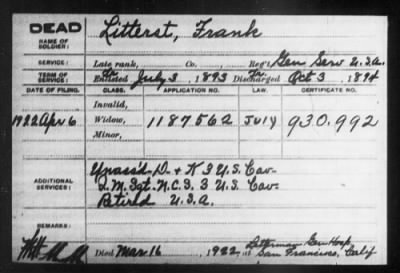 DEAD
NAME OF
SOLDIER:
Litterst, Frank
SERVICE:
Late rank, Co. Reg't Gen Serv U.S.A.
TERM OF
SERVICE:
Enlisted July 3, 1893 Discharged Oct 3, 1894
DATE OF FILING. CLASS. APPLICATION NO. LAW. CERTIFICATE NO.
Invalid,
1922 Apr 6 Widow, 1187562 July 930.992
Minor,
ADDITIONAL
SERVICES:
Unass'd - D + K 3 U.S. Cav-
Q.M. Sgt. N.C.S. 3 U.S. Cav-
Retired U.S.A.
REMARKS:
Died Mar 16, 1922, Letterman Gen Hosp
San Francisco, Calif